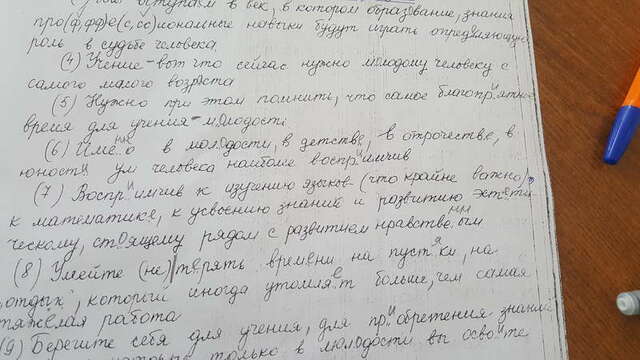 про(ф,фф)е(с,сс)иональные навыки будут играть определяющую
роль в судьбе человека
(4) Учение - вот что сейчас нужно молодому человеку с
самого малого возраста
(5) Нужно при этом помнить, что самое
время для учения - молодость
(6) в молодости, в детстве, в отрочестве, в
юности ум человека наиболее восприимчив
(7) Восприимчив к изучению языков (что крайне важно),
к математике, к усвоению знаний и развитию эстети-
ческому, стоящему рядом с развитием нравственным
(8) Умейте (не)терять время на пустяки, на
отдых, который иногда утомляет больше, чем самая
тяжелая работа
(9) Берегите себя для учения, для приобретения знаний
только в молодости вы